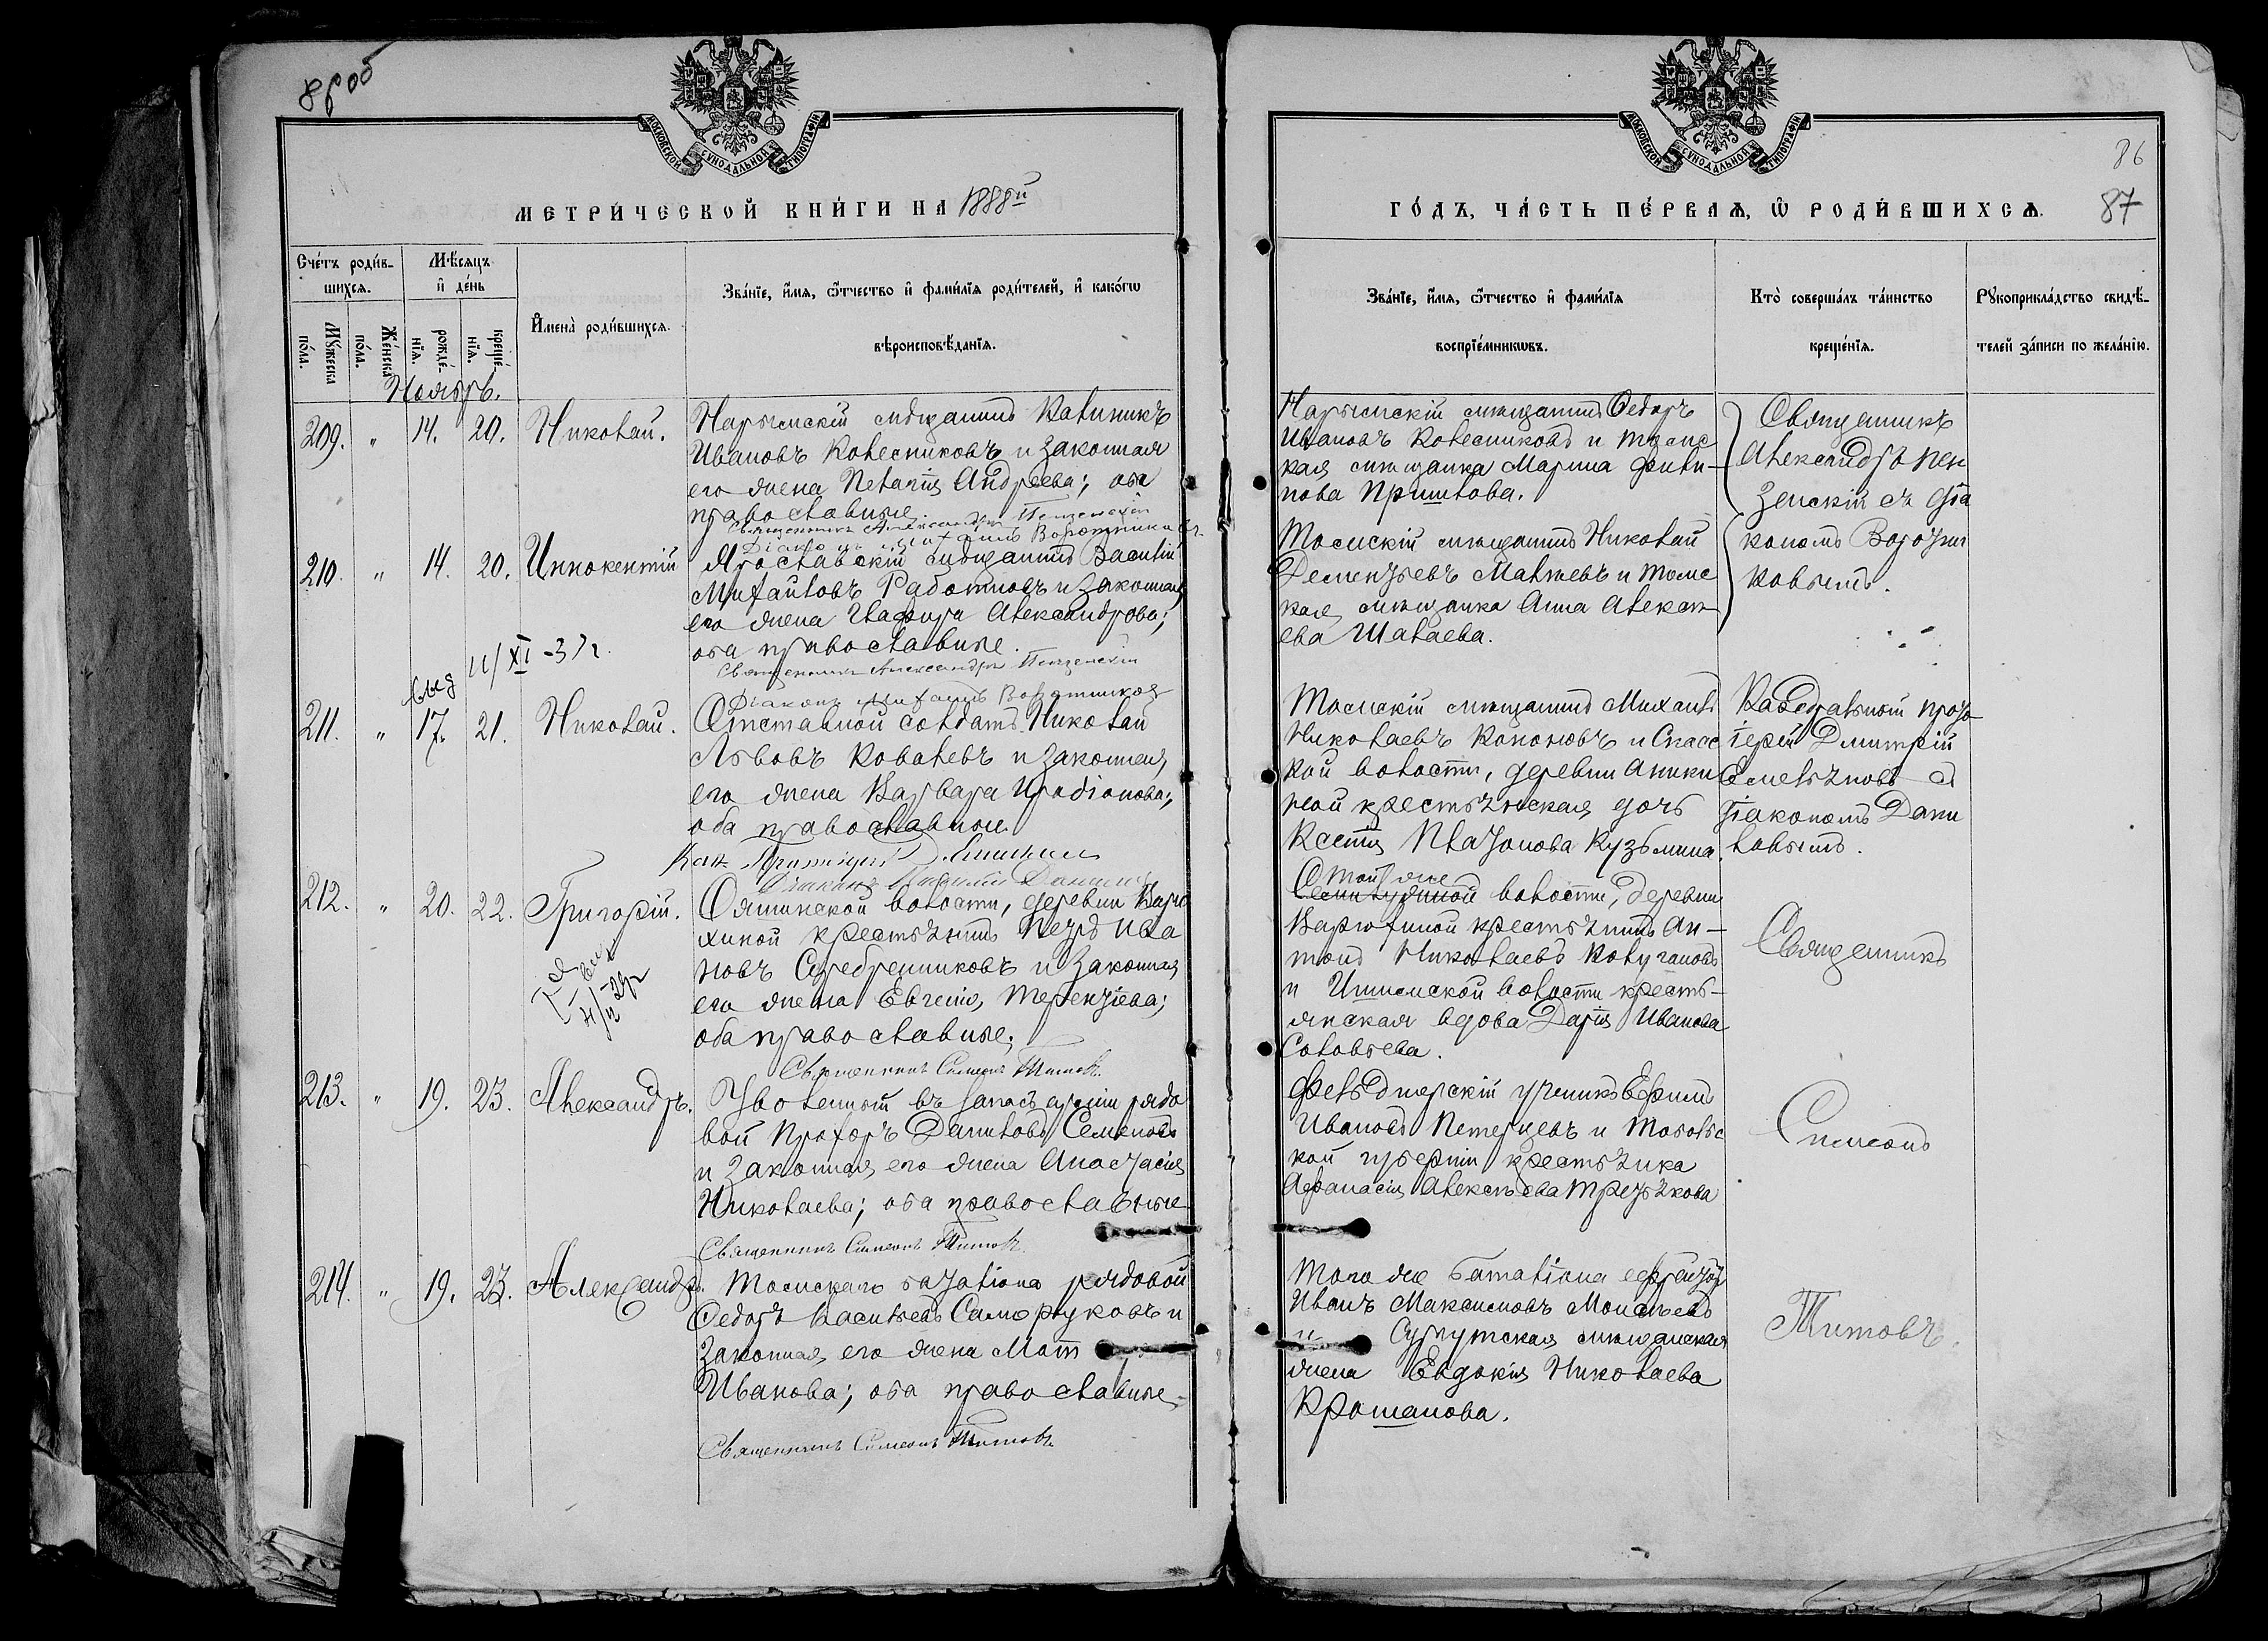 86 об
МОСКОВСКОЙ СѴНОДАЛЬНОЙ ТИПОГРАФІИ
МЕТРИЧЕСКОЙ КНИГИ НА 1888й
Счетъ родив-
шихся.
Мѣсяцъ
и день
Мꙋжеска
пола.
Женска
пола.
рожде-
нія.
креще-
нія.
Имена родившихся.
Званіе, имя, ѿтчество и фамилія родителей, и какогѡ
вѣроисповѣданія.
Ноябрь.
209. " 14. 20. Николай.
Нарымскій мѣщанинъ Калиникъ
Ивановъ Колесниковъ и законная
его жена Пелагія Андреева; оба
православные.
Священникъ Александръ Пензенскій
210. " 14. 20. Иннокентій
Ярославскій мѣщанинъ Василій
Михайловъ Работновъ и законная
его жена Глафира Александрова;
оба православные.
Священникъ Александръ Пензенскій
211. " 17. 21. Николай.
Отставной солдатъ Николай
Львовъ Ковалевъ и законная
его жена Варвара Иродіонова;
оба православные.
212. " 20. 22. Григорій.
Ояшинской волости, деревни Варю
хиной крестьянинъ Петръ Ива
новъ Серебренниковъ и законная
его жена Евгенія Терентіева;
оба православные;
Священникъ Симеонъ Титовъ.
213. " 19. 23. Александръ.
Уволенный въ запасъ арміи рядо
вой Прохоръ Даниловъ Семеновъ
и законная его жена Анастасія
Николаева; оба православные
Священникъ Симеонъ Титовъ.
214. " 19. 23. Александръ.
Томскаго баталіона рядовой
Федоръ Васильевъ Саморуковъ и
законная его жена
Иванова; оба православные.
Священникъ Симеонъ Титовъ.
МОСКОВСКОЙ СѴНОДАЛЬНОЙ ТИПОГРАФІИ
86
87
ГОДЪ, ЧАСТЬ ПЕРВАЯ, Ѡ РОДИВШИХСЯ.
Званіе, имя, ѿтчество и фамилія
воспріемникѡвъ.
Кто совершалъ таинство
крещенія.
Рꙋкоприкладство свидѣ-
телей записи по желанію.
Нарымскій мѣщанинъ Федоръ
Ивановъ Колесниковъ и томс
кая мѣщанка Марина Фили-
пова Пришлова.
Священникъ
Александръ Пен
зенскій съ діа
кономъ Воротни
ковымъ.
Томскій мѣщанинъ Николай
Дементьевъ Малтевъ и томс
кая мѣщанка Анна Алексѣ
ева Шалаева.
Томскій мѣщанинъ Михаилъ
Николаевъ Кононовъ и Спасс
кой волости, деревни Аники
ной крестьянская дочь
Ксенія Платонова Кузьмина.
Кафедральный прото
іерей Димитрій
съ
діакономъ Дани
ловымъ.
Той же
волости, деревни
Варюхиной крестьянинъ Ан-
тонъ Николаевъ
и Ишимской волости кресть-
янская вдова Дарія Иванова
Соловьева.
Священникъ
Фельдшерскій ученикъ Ефимъ
Ивановъ Петерцевъ и Тобольс
кой губерніи крестьянка
Афанасія Алексѣева Третьякова
Симеонъ
Того же баталіона ефрейторъ
Иванъ Максимовъ Моисѣевъ
и Сургутская мѣщанская
жена Евдокія Николаева
Крошанова.
Титовъ.